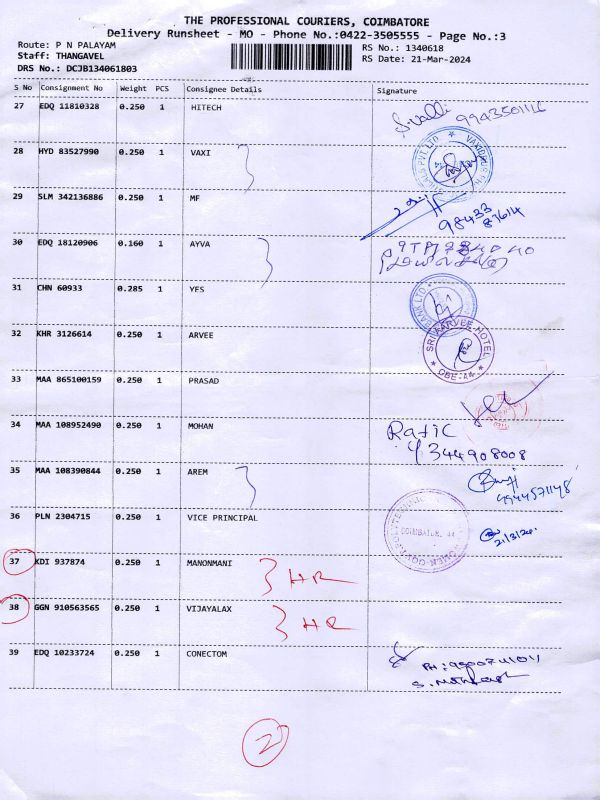 THE PROFESSIONAL COURIERS, COIMBATORE
Delivery Runsheet - MO - Phone No.:0422-3505555 - Page No.:3
Route: P N PALAYAM
Staff: THANGAVEL
DRS No.: DCJB134061803
RS No.: 1340618
RS Date: 21-Mar-2024
S No Consignment No Weight PCS Consignee Details Signature
27 EDQ 11810328 0.250 1 HITECH S.Valli
28 HYD 83527990 0.250 1 VAXI
29 SLM 342136886 0.250 1 MF
98433
87614
30 EDQ 18120906 0.160 1 AYVA
31 CHN 60933 0.285 1 YES
BANK LTD
32 KHR 3126614 0.250 1 ARVEE
SRI AARVEE HOTEL
CBE-44
33 MAA 865100159 0.250 1 PRASAD
34 MAA 108952490 0.250 1 MOHAN
9344908008
35 MAA 108390844 0.250 1 AREM
36 PLN 2304715 0.250 1 VICE PRINCIPAL
COIMBATORE. 44
21/3/24
37 KDI 937874 0.250 1 MANONMANI HR
38 GGN 910563565 0.250 1 VIJAYALAX HR
39 EDQ 10233724 0.250 1 CONECTOM
2